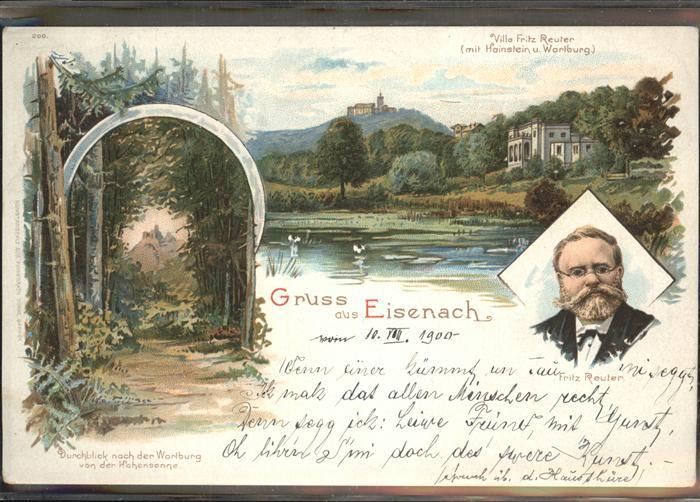 200.
Villa Fritz Reuter
(mit Hainstein u. Wartburg.)
Gruss
aus Eisenach
vom 10. VIII. 1900
Fritz Reuter.
Wenn einer kümmt un tau mi seggt,
Ick mak dat allen Minschen recht,
Denn segg ick: Leiwe Fründ, mit Gunst,
Oh lihrn S' mi doch des swere Kunst. -
Spruch üb. d. Hausthüre
Durchblick nach der Wartburg
von der Hohensonne.